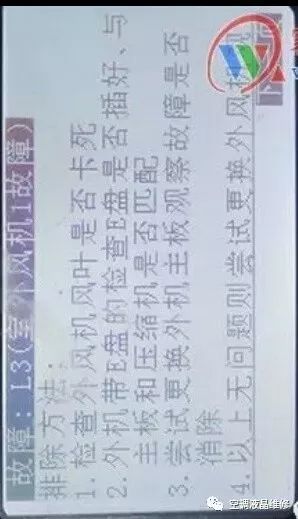 故障: L3(室外风机1故障)
排除方法:
1. 检查外风机风叶是否卡死
2. 外机带E盘的检查E盘是否插好、与
主板和压缩机是否匹配
3. 尝试更换外机主板观察故障是否
消除
4. 以上无问题则尝试更换外风机
空调液晶维修